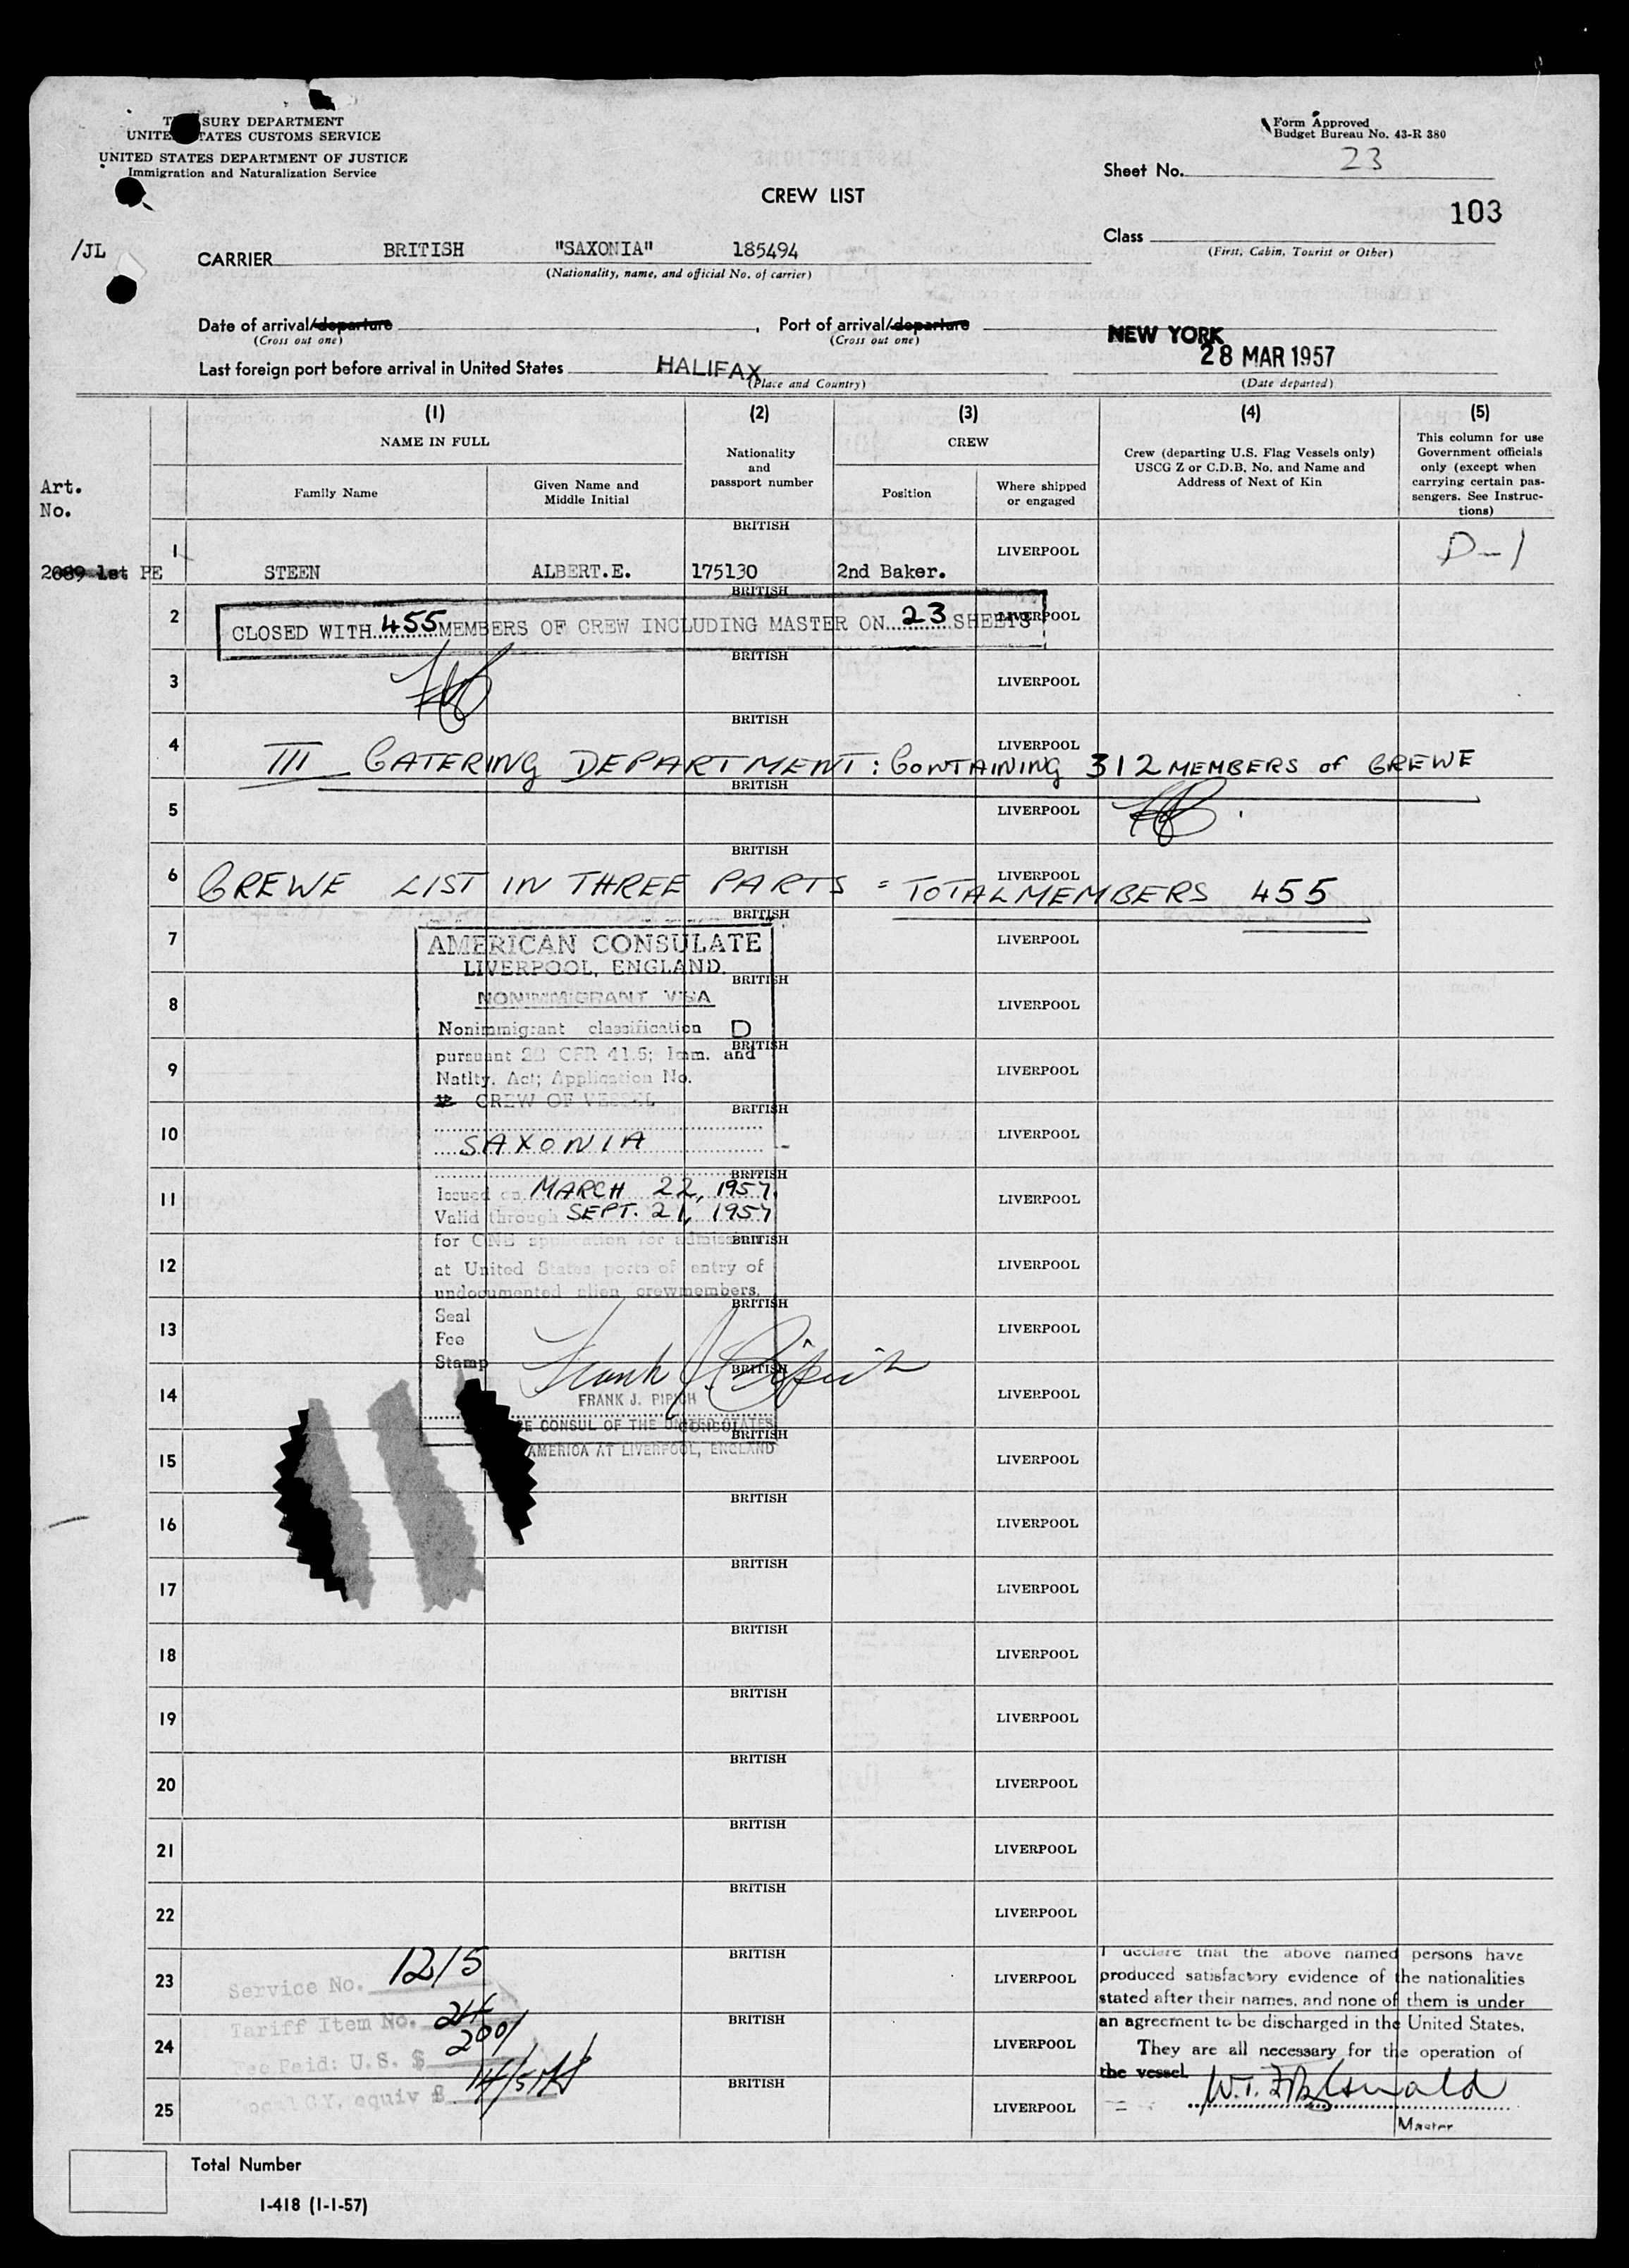 SURY DEPARTMENT
UNITE TATES CUSTOMS SERVICE
UNITED STATES DEPARTMENT OF JUSTICE
Immigration and Naturalization Service
Form Approved
Budget Bureau No. 43-R 380
Sheet No. 23
CREW LIST
103
Class
(First, Cabin, Tourist or Other)
/JL
CARRIER BRITISH "SAXONIA" 185494
(Nationality, name, and official No. of carrier)
Date of arrival/departure , Port of arrival/departure NEW YORK
(Cross out one) (Cross out one)
28 MAR 1957
Last foreign port before arrival in United States HALIFAX
(Place and Country) (Date departed)
(1) (2) (3) (4) (5)
NAME IN FULL
Nationality and passport number
CREW
Crew (departing U.S. Flag Vessels only) USCG Z or C.D.B. No. and Name and Address of Next of Kin
This column for use Government officials only (except when carrying certain passengers. See Instructions)
Art. No.
Family Name
Given Name and Middle Initial
Position
Where shipped or engaged
BRITISH
1 LIVERPOOL D-1
2089 1st PE STEEN ALBERT.E. 175130 2nd Baker.
BRITISH
2 LIVERPOOL
CLOSED WITH 455 MEMBERS OF CREW INCLUDING MASTER ON 23 SHEETS
BRITISH
3 LIVERPOOL
BRITISH
4 LIVERPOOL
III CATERING DEPARTMENT: CONTAINING 312 MEMBERS of CREWE
BRITISH
5 LIVERPOOL
BRITISH
6 LIVERPOOL
CREWE LIST IN THREE PARTS = TOTAL MEMBERS 455
BRITISH
7 LIVERPOOL
AMERICAN CONSULATE
LIVERPOOL, ENGLAND.
BRITISH
8 LIVERPOOL
NONIMMIGRANT VISA
Nonimmigrant classification D
BRITISH
pursuant 22 CFR 41.5; Imm. and
9 LIVERPOOL
Natlty. Act; Application No.
CREW OF VESSEL
BRITISH
10 LIVERPOOL
SAXONIA
BRITISH
11 LIVERPOOL
Issued on MARCH 22, 1957.
Valid through SEPT. 21, 1957
BRITISH
for ONE application for admission
12 LIVERPOOL
at United States ports of entry of
undocumented alien crewmembers.
BRITISH
13 LIVERPOOL
Seal
Fee
Stamp
Frank J. Pipich
BRITISH
14 LIVERPOOL
FRANK J. PIPICH
E CONSUL OF THE UNITED STATES
CONSUL
BRITISH
AMERICA AT LIVERPOOL, ENGLAND
15 LIVERPOOL
BRITISH
16 LIVERPOOL
BRITISH
17 LIVERPOOL
BRITISH
18 LIVERPOOL
BRITISH
19 LIVERPOOL
BRITISH
20 LIVERPOOL
BRITISH
21 LIVERPOOL
BRITISH
22 LIVERPOOL
BRITISH
23 LIVERPOOL
Service No. 1215
BRITISH
24 LIVERPOOL
Tariff Item No. 24
Fee Paid: U.S. $ 200
BRITISH
25 LIVERPOOL
equiv £ 14/5
I declare that the above named persons have
produced satisfactory evidence of the nationalities
stated after their names, and none of them is under
an agreement to be discharged in the United States.
They are all necessary for the operation of
the vessel.
Master
Total Number
I-418 (1-1-57)